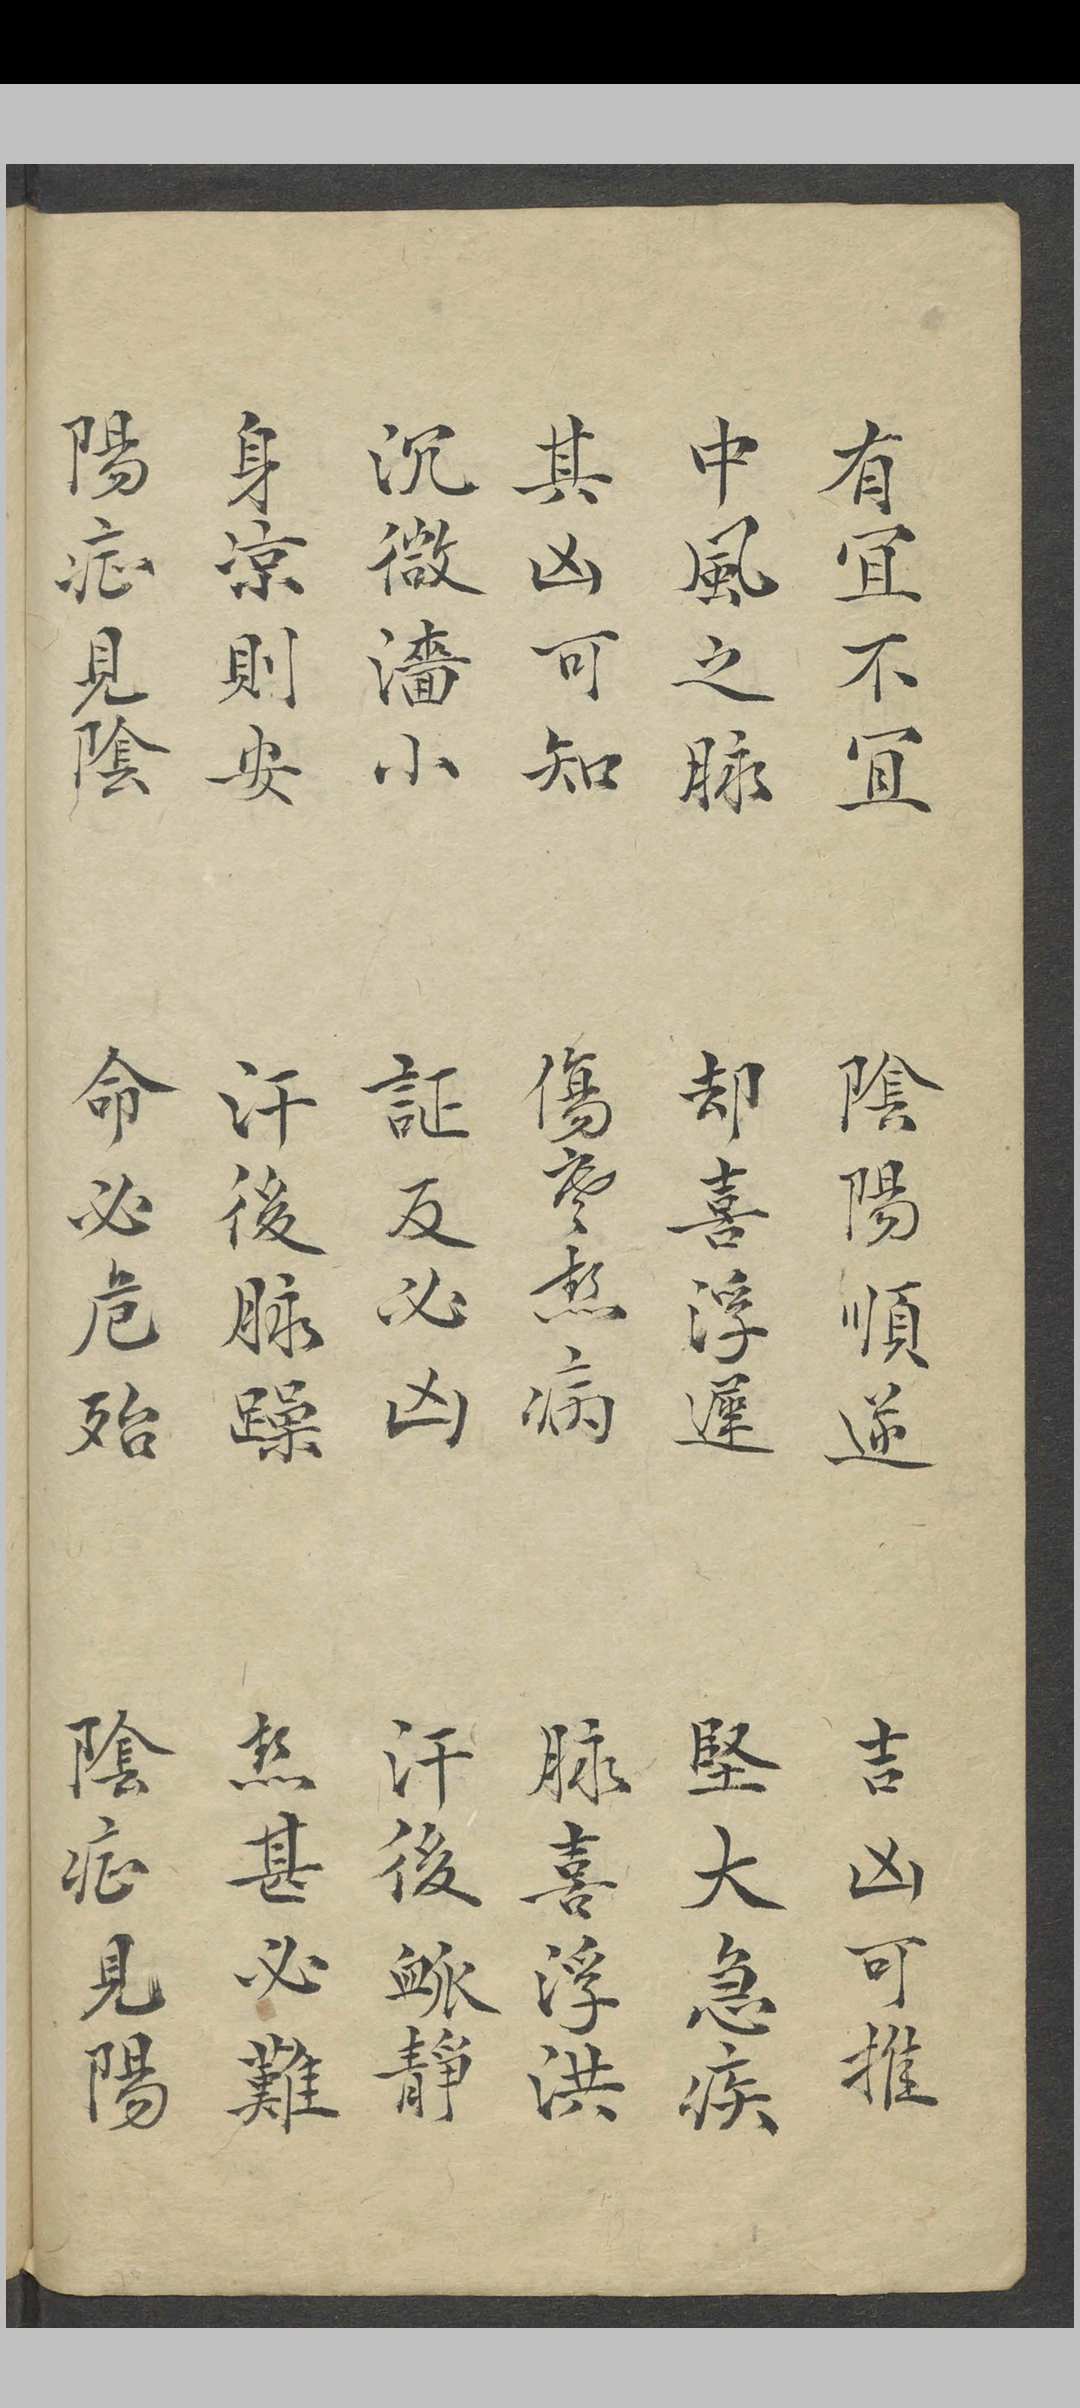 有宜不宜 陰陽順逆 吉凶可推
中風之脉 却喜浮遲 堅大急疾
其凶可知 傷寒熱病 脉喜浮洪
沉微濇小 証反必凶 汗後脈靜
身凉則安 汗後脉躁 熱甚必難
陽症見陰 命必危殆 陰症見陽